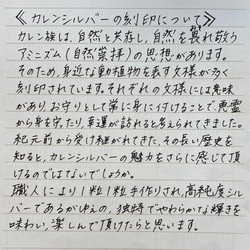 《カレンシルバーの刻印について》
カレン族は、自然と共存し、自然を畏れ敬う
アニミズム(自然崇拝)の思想があります。
そのため、身近な動植物を表す文様が多く
刻印されています。それぞれの文様には意味
があり、お守りとして常に身に付けることで、悪霊
から身を守ったり、幸運が訪れると考えられてきました。
紀元前から受け継がれてきた、その長い歴史を
知ると、カレンシルバーの魅力をさらに感じて頂
けるのではないでしょうか。
職人により1粒1粒手作りされ、高純度シル
バーであるがゆえの、独特でやわらかな輝きを
味わい、楽しんで頂けたらと思います。